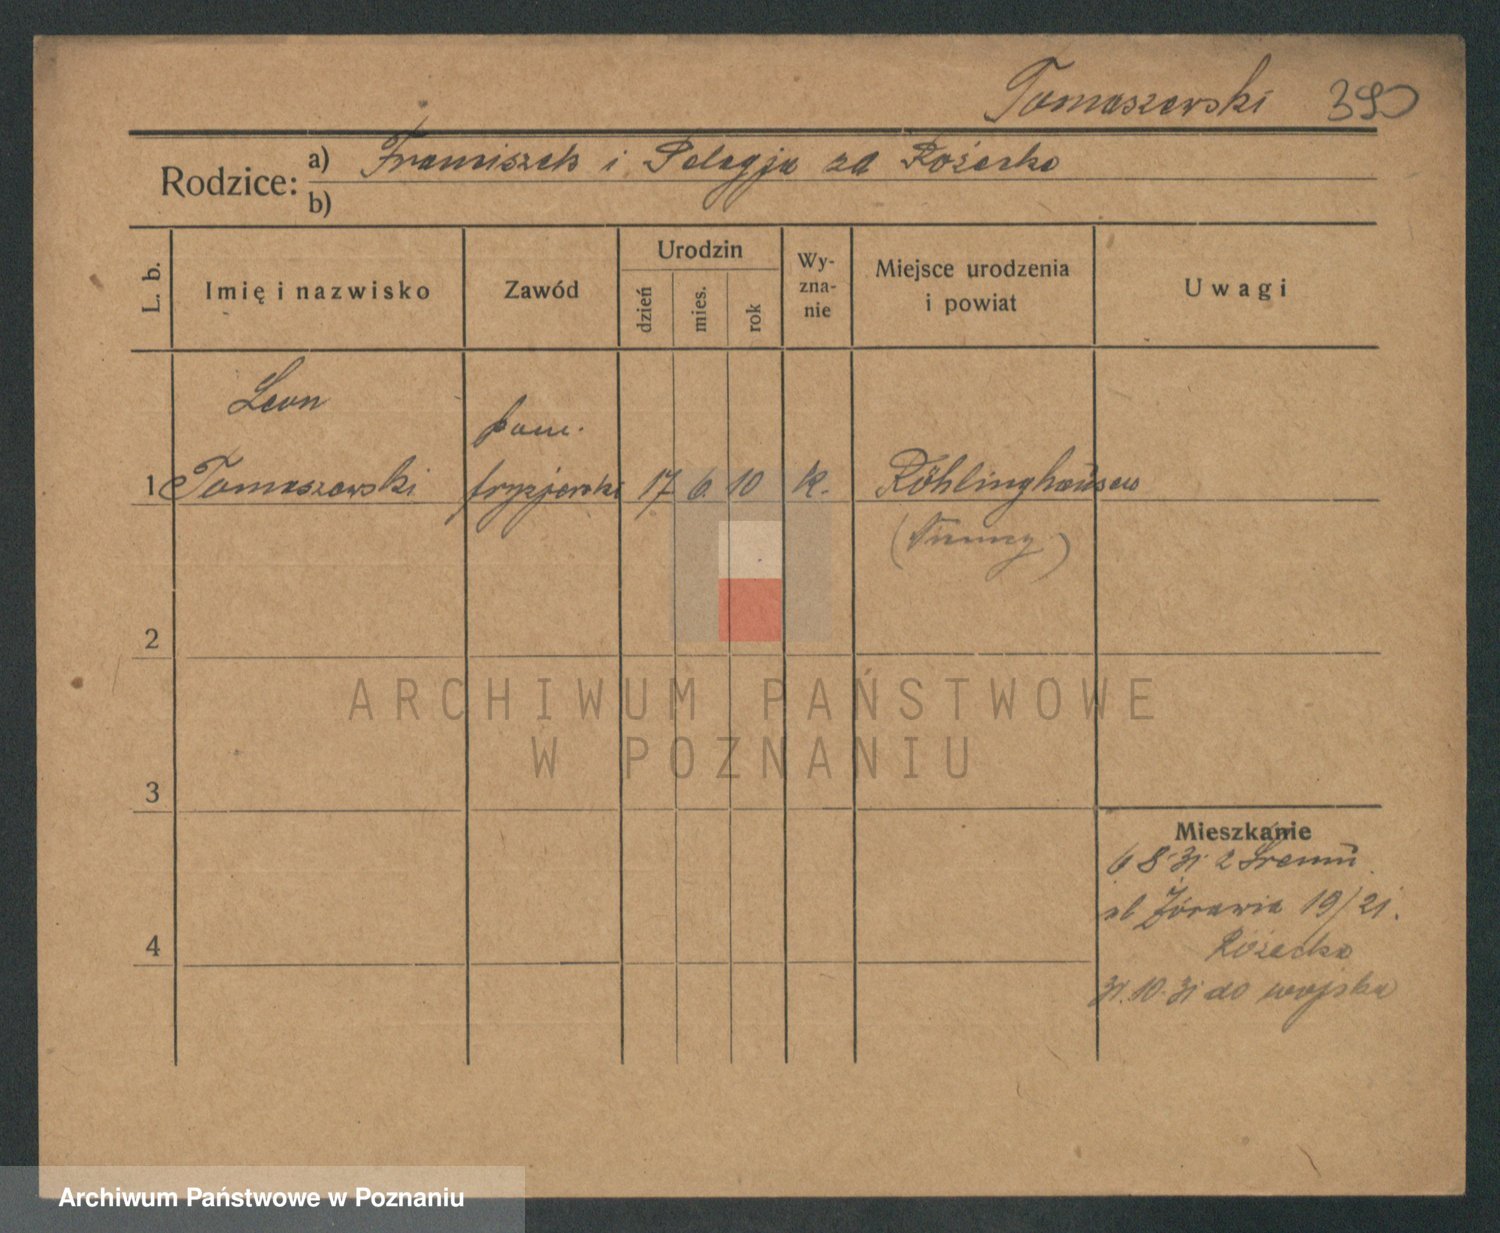 Tomaszewski 390
Rodzice: a) Franciszek i Pelagja zd Różecka
b)
L. b. Imię i nazwisko Zawód Urodzin dzień mies. rok Wyznanie Miejsce urodzenia i powiat Uwagi
Leon
pom.
1 Tomaszewski fryzjerski 17 6 10 K. Röhlinghausen
(Niemcy)
2
ARCHIWUM PAŃSTWOWE
W POZNANIU
3
Mieszkanie
6 8 31 z Śremu
ul Żórawia 19/21.
4
Różecka
31.10.31 do wojska
Archiwum Państwowe w Poznaniu